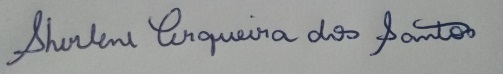 Sherlene Cerqueira dos Santos